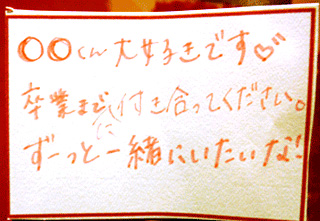 ○○くん大好きです♡
卒業までに付き合ってください。
ずーっと一緒にいたいな!